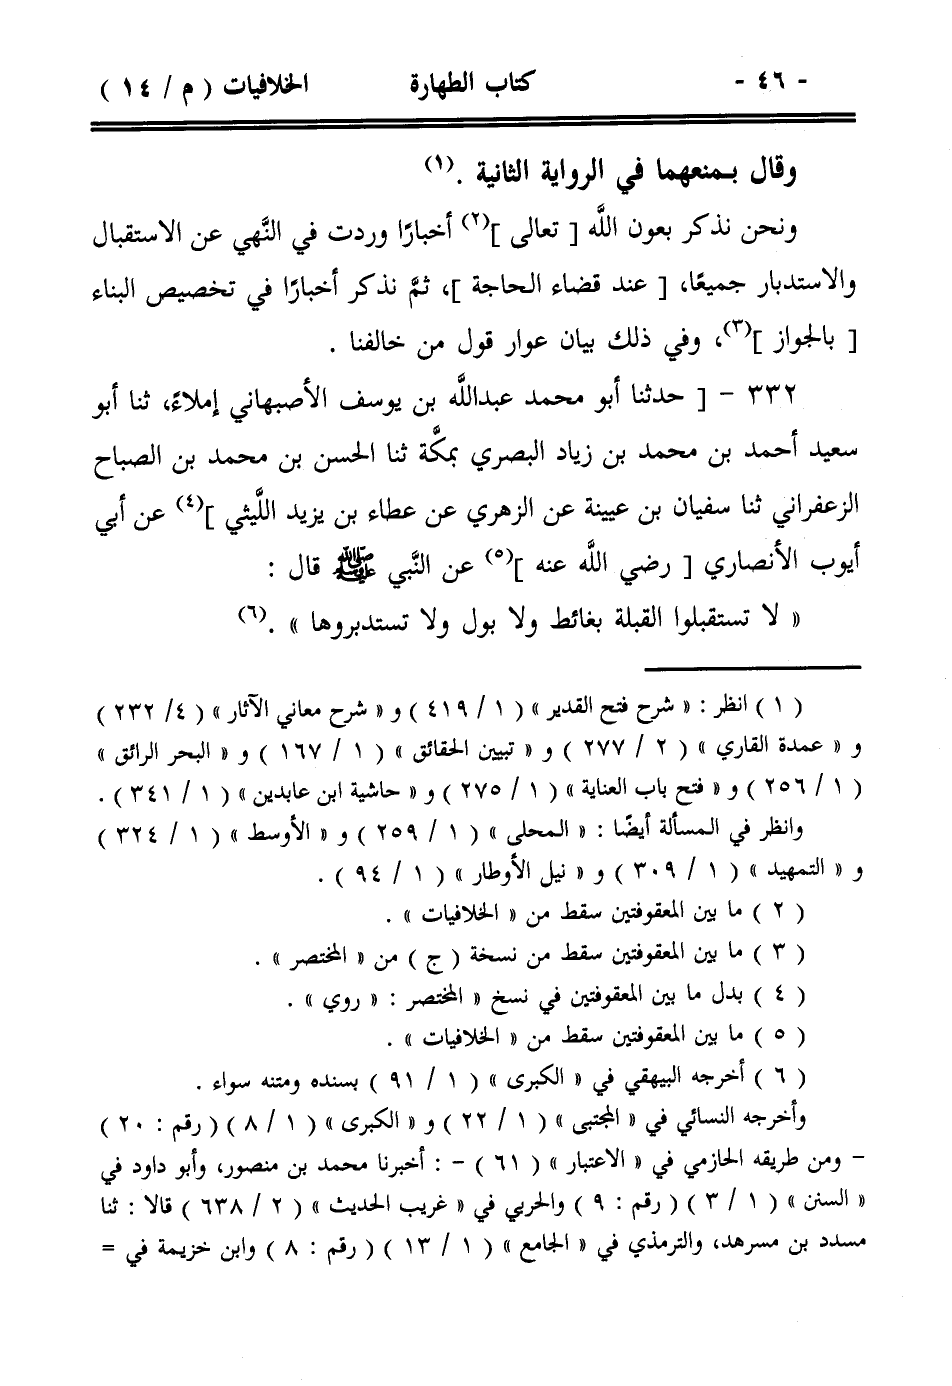 - ٤٦ - كتاب الطهارة الخلافيات ( م / ١٤ )
وقال بـمنعهما في الرواية الثانية .(١)
ونحن نذكر بعون اللَّه [ تعالى ](٢) أخبارًا وردت في النَّهي عن الاستقبال
والاستدبار جميعًا، [ عند قضاء الحاجة ]، ثمَّ نذكر أخبارًا في تخصيص البناء
[ بالجواز ](٣)، وفي ذلك بيان عوار قول من خالفنا .
٣٣٢ - [ حدثنا أبو محمد عبداللَّه بن يوسف الأصبهاني إملاءً، ثنا أبو
سعيد أحمد بن محمد بن زياد البصري بمكَّة ثنا الحسن بن محمد بن الصباح
الزعفراني ثنا سفيان بن عيينة عن الزهري عن عطاء بن يزيد اللَّيثي ](٤) عن أبي
أيوب الأنصاري [ رضي اللَّه عنه ](٥) عن النَّبي ﷺ قال :
« لا تستقبلوا القبلة بغائط ولا بول ولا تستدبروها » .(٦)
( ١ ) انظر : « شرح فتح القدير » ( ١ / ٤١٩ ) و « شرح معاني الآثار » ( ٤ / ٢٣٢ )
و « عمدة القاري » ( ٢ / ٢٧٧ ) و « تبيين الحقائق » ( ١ / ١٦٧ ) و « البحر الرائق »
( ١ / ٢٥٦ ) و « فتح باب العناية » ( ١ / ٢٧٥ ) و « حاشية ابن عابدين » ( ١ / ٣٤١ ) .
وانظر في المسألة أيضًا : « المحلى » ( ١ / ٢٥٩ ) و « الأوسط » ( ١ / ٣٢٤ )
و « التمهيد » ( ١ / ٣٠٩ ) و « نيل الأوطار » ( ١ / ٩٤ ) .
( ٢ ) ما بين المعقوفتين سقط من « الخلافيات » .
( ٣ ) ما بين المعقوفتين سقط من نسخة ( ج ) من « المختصر » .
( ٤ ) بدل ما بين المعقوفتين في نسخ « المختصر : « روي » .
( ٥ ) ما بين المعقوفتين سقط من « الخلافيات » .
( ٦ ) أخرجه البيهقي في « الكبرى » ( ١ / ٩١ ) بسنده ومتنه سواء .
وأخرجه النسائي في « المجتبى » ( ١ / ٢٢ ) و « الكبرى » ( ١ / ٨ ) ( رقم : ٢٠ )
- ومن طريقه الحازمي في « الاعتبار » ( ٦١ ) - : أخبرنا محمد بن منصور، وأبو داود في
« السنن » ( ١ / ٣ ) ( رقم : ٩ ) والحربي في « غريب الحديث » ( ٢ / ٦٣٨ ) قالا : ثنا
مسدد بن مسرهد، والترمذي في « الجامع » ( ١ / ١٣ ) ( رقم : ٨ ) وابن خزيمة في =